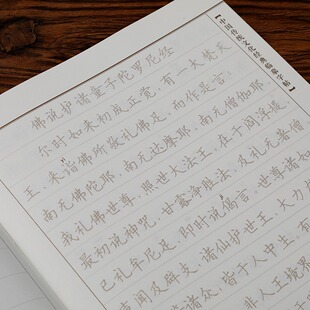 【中国传统文化经典临摹字帖】
佛说护诸童子陀罗尼经
尔时如来初成正觉，有一大梵天
王，来诣佛所敬礼佛足，而作是言：
南无佛陀耶，南无达摩耶，南无僧伽耶，
我礼佛世尊，照世大法王，在于阎浮提，
最初说神咒，甘露净胜法，及礼无著僧，
已礼牟尼足，即时说偈言，世尊诸如
声闻及辟支，诸仙护世王，大力
皆于人中生，有
非人王境界